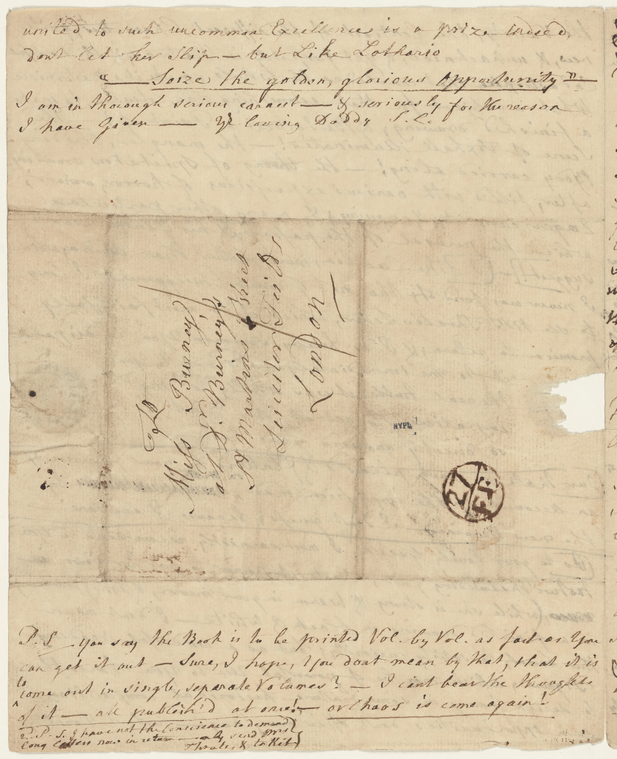 united to such uncommon Excellence is a prize indeed,
dont let her slip — but Like Lothario
" — Seize the golden, glorious Opportunity " —
I am in thorough serious earnest — & seriously for the reason
I have Given — Yr loving Daddy S. C.
To
Miss Burney
at Dr. Burney's
St Martins Street
Leicester Fields
London
NYPL
27
P. S. You say the Book is to be printed Vol. by Vol. as fast as You
can get it out — Sure, I hope, You dont mean by that, that it is
to
come out in single, separate Volumes? — I cant bear the thoughts
of it — all publish'd at once! — or Chaos is come again!
2. P. S. I have not the Conscience to demand
Long Letters now in return — only send Mrs
Thrale, & to Kit